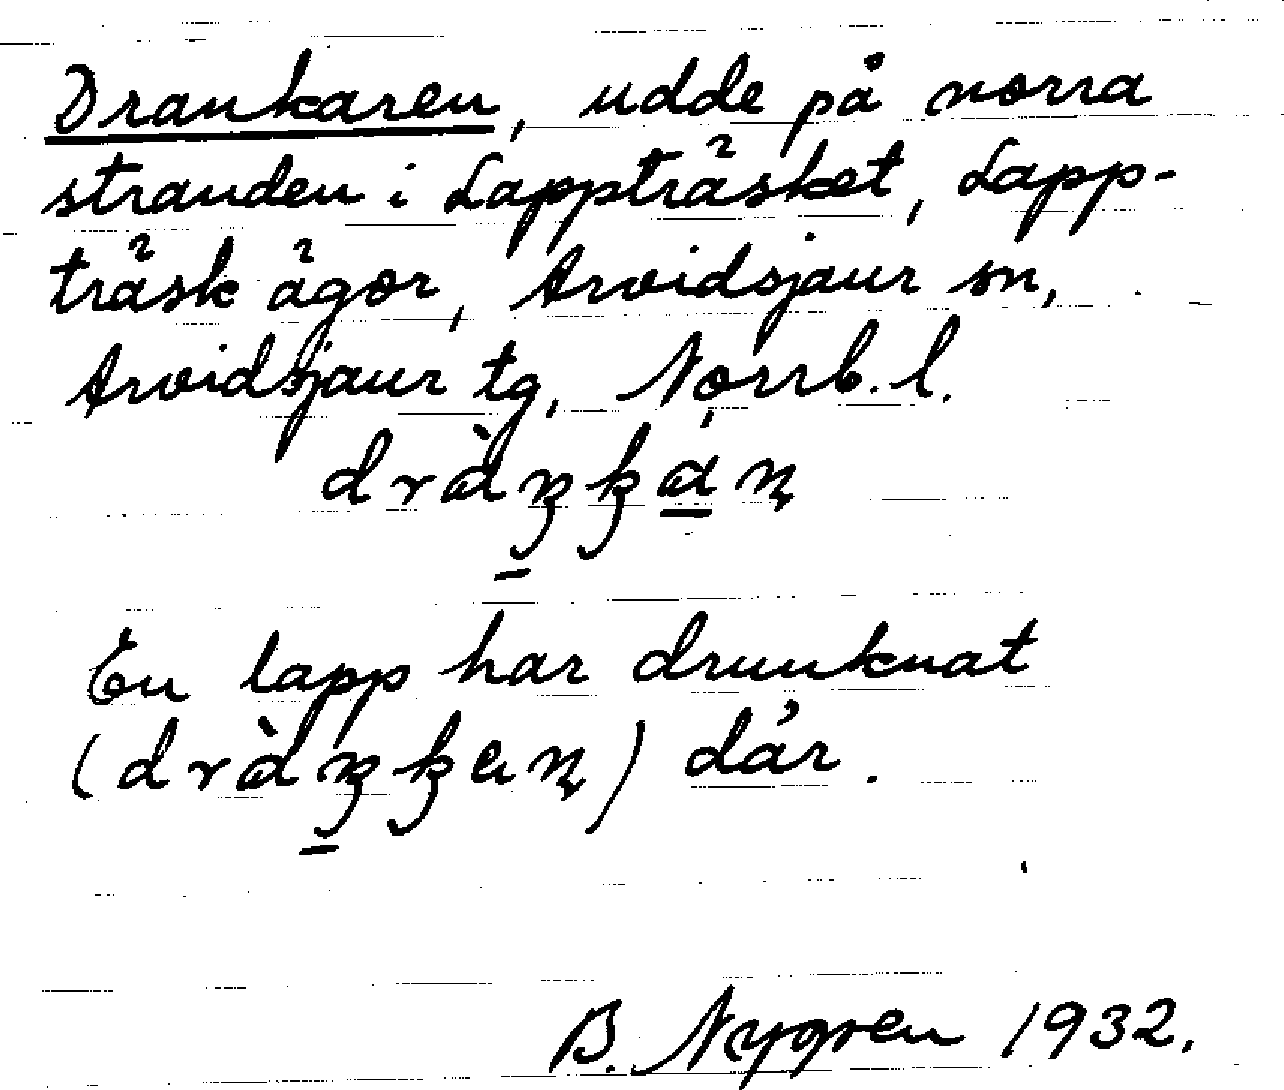 Drankaren, udde på norra
stranden i Lappträsket, Lapp-
träsk ägor, Arvidsjaur sn,
Arvidsjaur tg, Norrb. l.
En lapp har drunknat
där.
B. Nygren 1932.